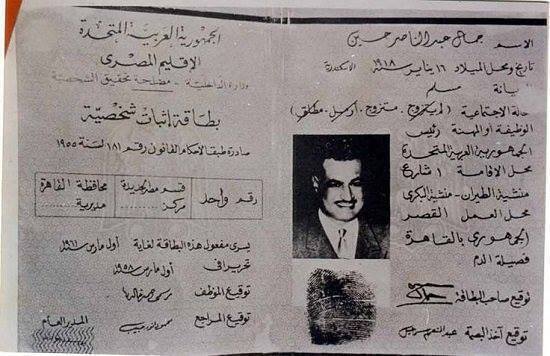 الجمهورية العربية المتحدة
الإقليم المصرى
وزارة الداخلية - مصلحة تحقيق الشخصية
بطاقة إثبات شخصية
صادرة طبقا لأحكام القانون رقم ١٨١ لسنة ١٩٥٥
رقم واحد
قسم مصر الجديدة
مركز
محافظة القاهرة
مديرية
يسرى مفعول هذه البطاقة لغاية أول مارس ١٩٦١
تحريرا فى أول مارس ١٩٥٨
توقيع الموظف
توقيع المراجع
المدير العام
الاسم جمال عبد الناصر حسين
تاريخ ومحل الميلاد ١٦ يناير ١٩١٨ الاسكندرية
ديانة مسلم
حالة الاجتماعية (لم يتزوج. متزوج. أرمل. مطلق)
الوظيفة أو المهنة رئيس
الجمهورية العربية المتحدة
محل الاقامة ١ شارع
منشية الطيران - منشية البكرى
محل العمل القصر
الجمهورى بالقاهرة
فصيلة الدم
توقيع صاحب البطاقة
توقيع آخذ البصمة عبد المنعم